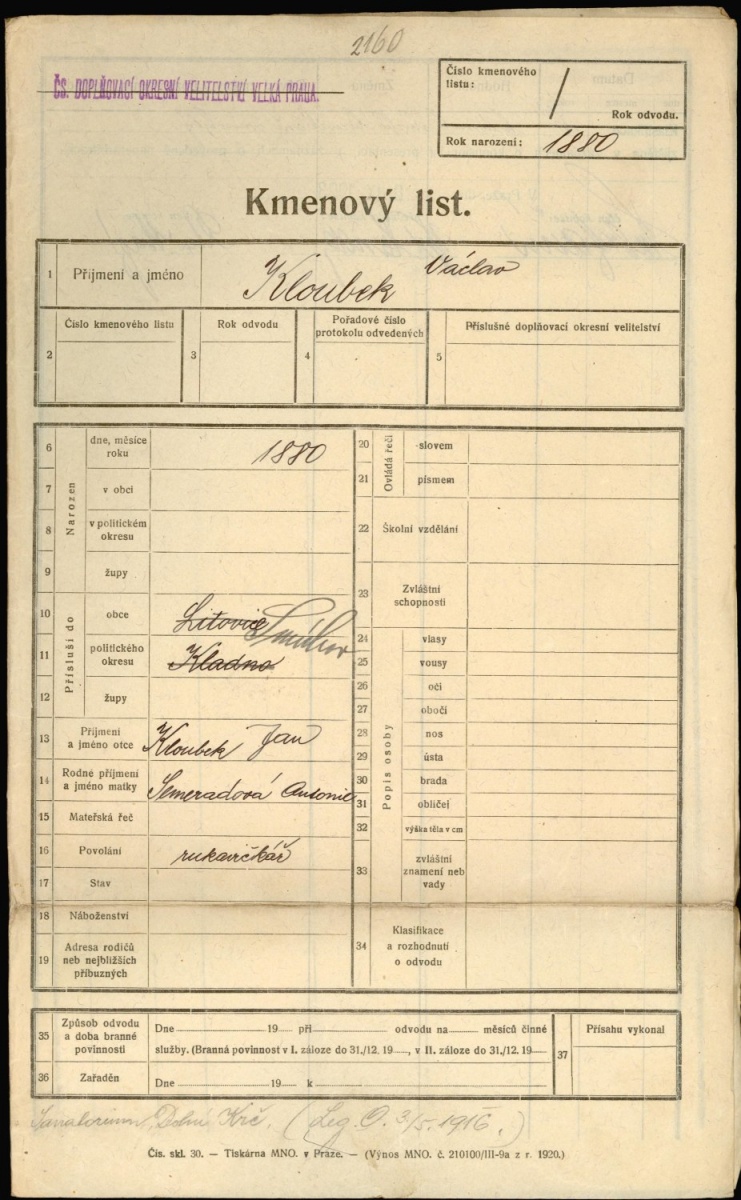 2160
ČS. DOPLŇOVACÍ OKRESNÍ VELITELSTVÍ VELKÁ PRAHA.
Číslo kmenového
listu: /
Rok odvodu.
Rok narození: 1880
Kmenový list.
1 Příjmení a jméno Kloubek Václav
2 Číslo kmenového listu
3 Rok odvodu
4 Pořadové číslo
protokolu odvedených
5 Příslušné doplňovací okresní velitelství
Narozen
6 dne, měsíce
roku 1880
7 v obci
8 v politickém
okresu
9 župy
Přísluší do
10 obce Litovice Smíchov
11 politického
okresu Kladno
12 župy
13 Příjmení
a jméno otce Kloubek Jan
14 Rodné příjmení
a jméno matky Semeradová Antonie
15 Mateřská řeč
16 Povolání rukavičkář
17 Stav
18 Náboženství
19 Adresa rodičů
neb nejbližších
příbuzných
Ovládá řeči
20 slovem
21 písmem
22 Školní vzdělání
23 Zvláštní
schopnosti
Popis osoby
24 vlasy
25 vousy
26 oči
27 obočí
28 nos
29 ústa
30 brada
31 obličej
32 výška těla v cm
33 zvláštní
znamení neb
vady
34 Klasifikace
a rozhodnutí
o odvodu
35 Způsob odvodu
a doba branné
povinnosti
Dne 19 při odvodu na měsíců činné
služby. (Branná povinnost v I. záloze do 31./12. 19 , v II. záloze do 31./12. 19
36 Zařaděn Dne 19 k
37 Přísahu vykonal
Sanatorium, Dolní Krč. (Leg. O. 3/5. 1916.)
Čís. skl. 30. — Tiskárna MNO. v Praze. — (Výnos MNO. č. 210100/III-9a z r. 1920.)